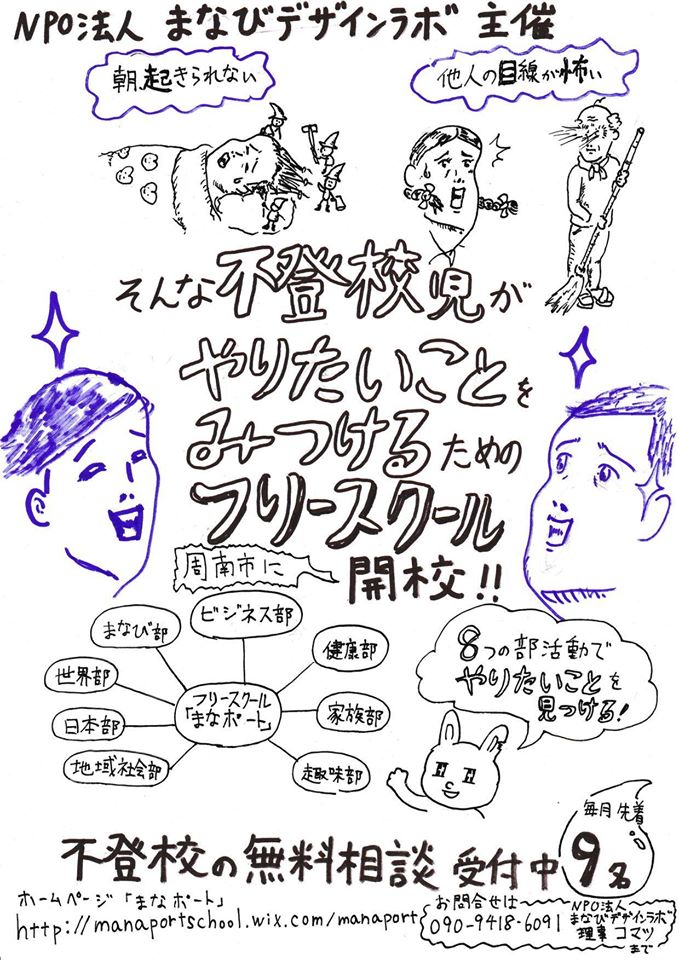 NPO法人 まなびデザインラボ 主催
朝、起きられない
他人の目線が怖い
そんな不登校児が
やりたいことを
みつけるための
フリースクール
周南市に
開校!!
ビジネス部
まなび部
健康部
世界部
フリースクール
「まなポート」
家族部
日本部
地域社会部
趣味部
8つの部活動で
やりたいことを
見つける!
毎月先着
9名
不登校の無料相談 受付中
ホームページ「まなポート」
http://manaportschool.wix.com/manaport
お問合せは
090-9418-6091
NPO法人
まなびデザインラボ
理事 コマツ
まで